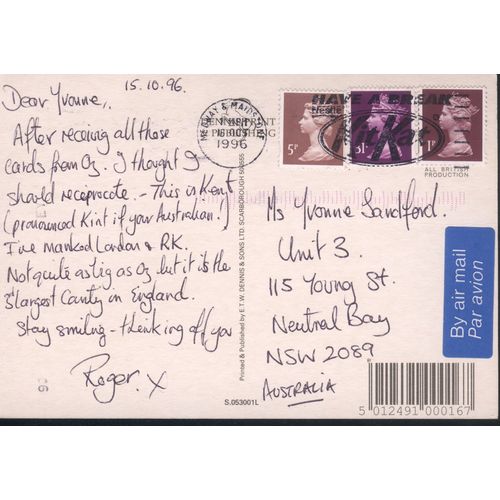 15.10.96.
Dear Yvonne,
After receiving all those
cards from Oz, I thought I
should reciprocate - This is Kent
(pronounced Kint if your Australian!)
I've marked London & RK.
Not quite as big as Oz but it is the
5 largest County in England.
Stay smiling - thinking off you
Roger. X
MEDWAY & MAIDSTONE
1996
HAVE A BREAK
Nestle
KitKat
5P
31P
1P
ALL BRITISH
PRODUCTION
Printed & Published by E.T.W. DENNIS & SONS LTD. SCARBOROUGH
Ms Yvonne Sandford.
Unit 3.
115 Young St.
Neutral Bay
NSW 2089
AUSTRALIA
By air mail
Par avion
S.053001L
5 012491 000167